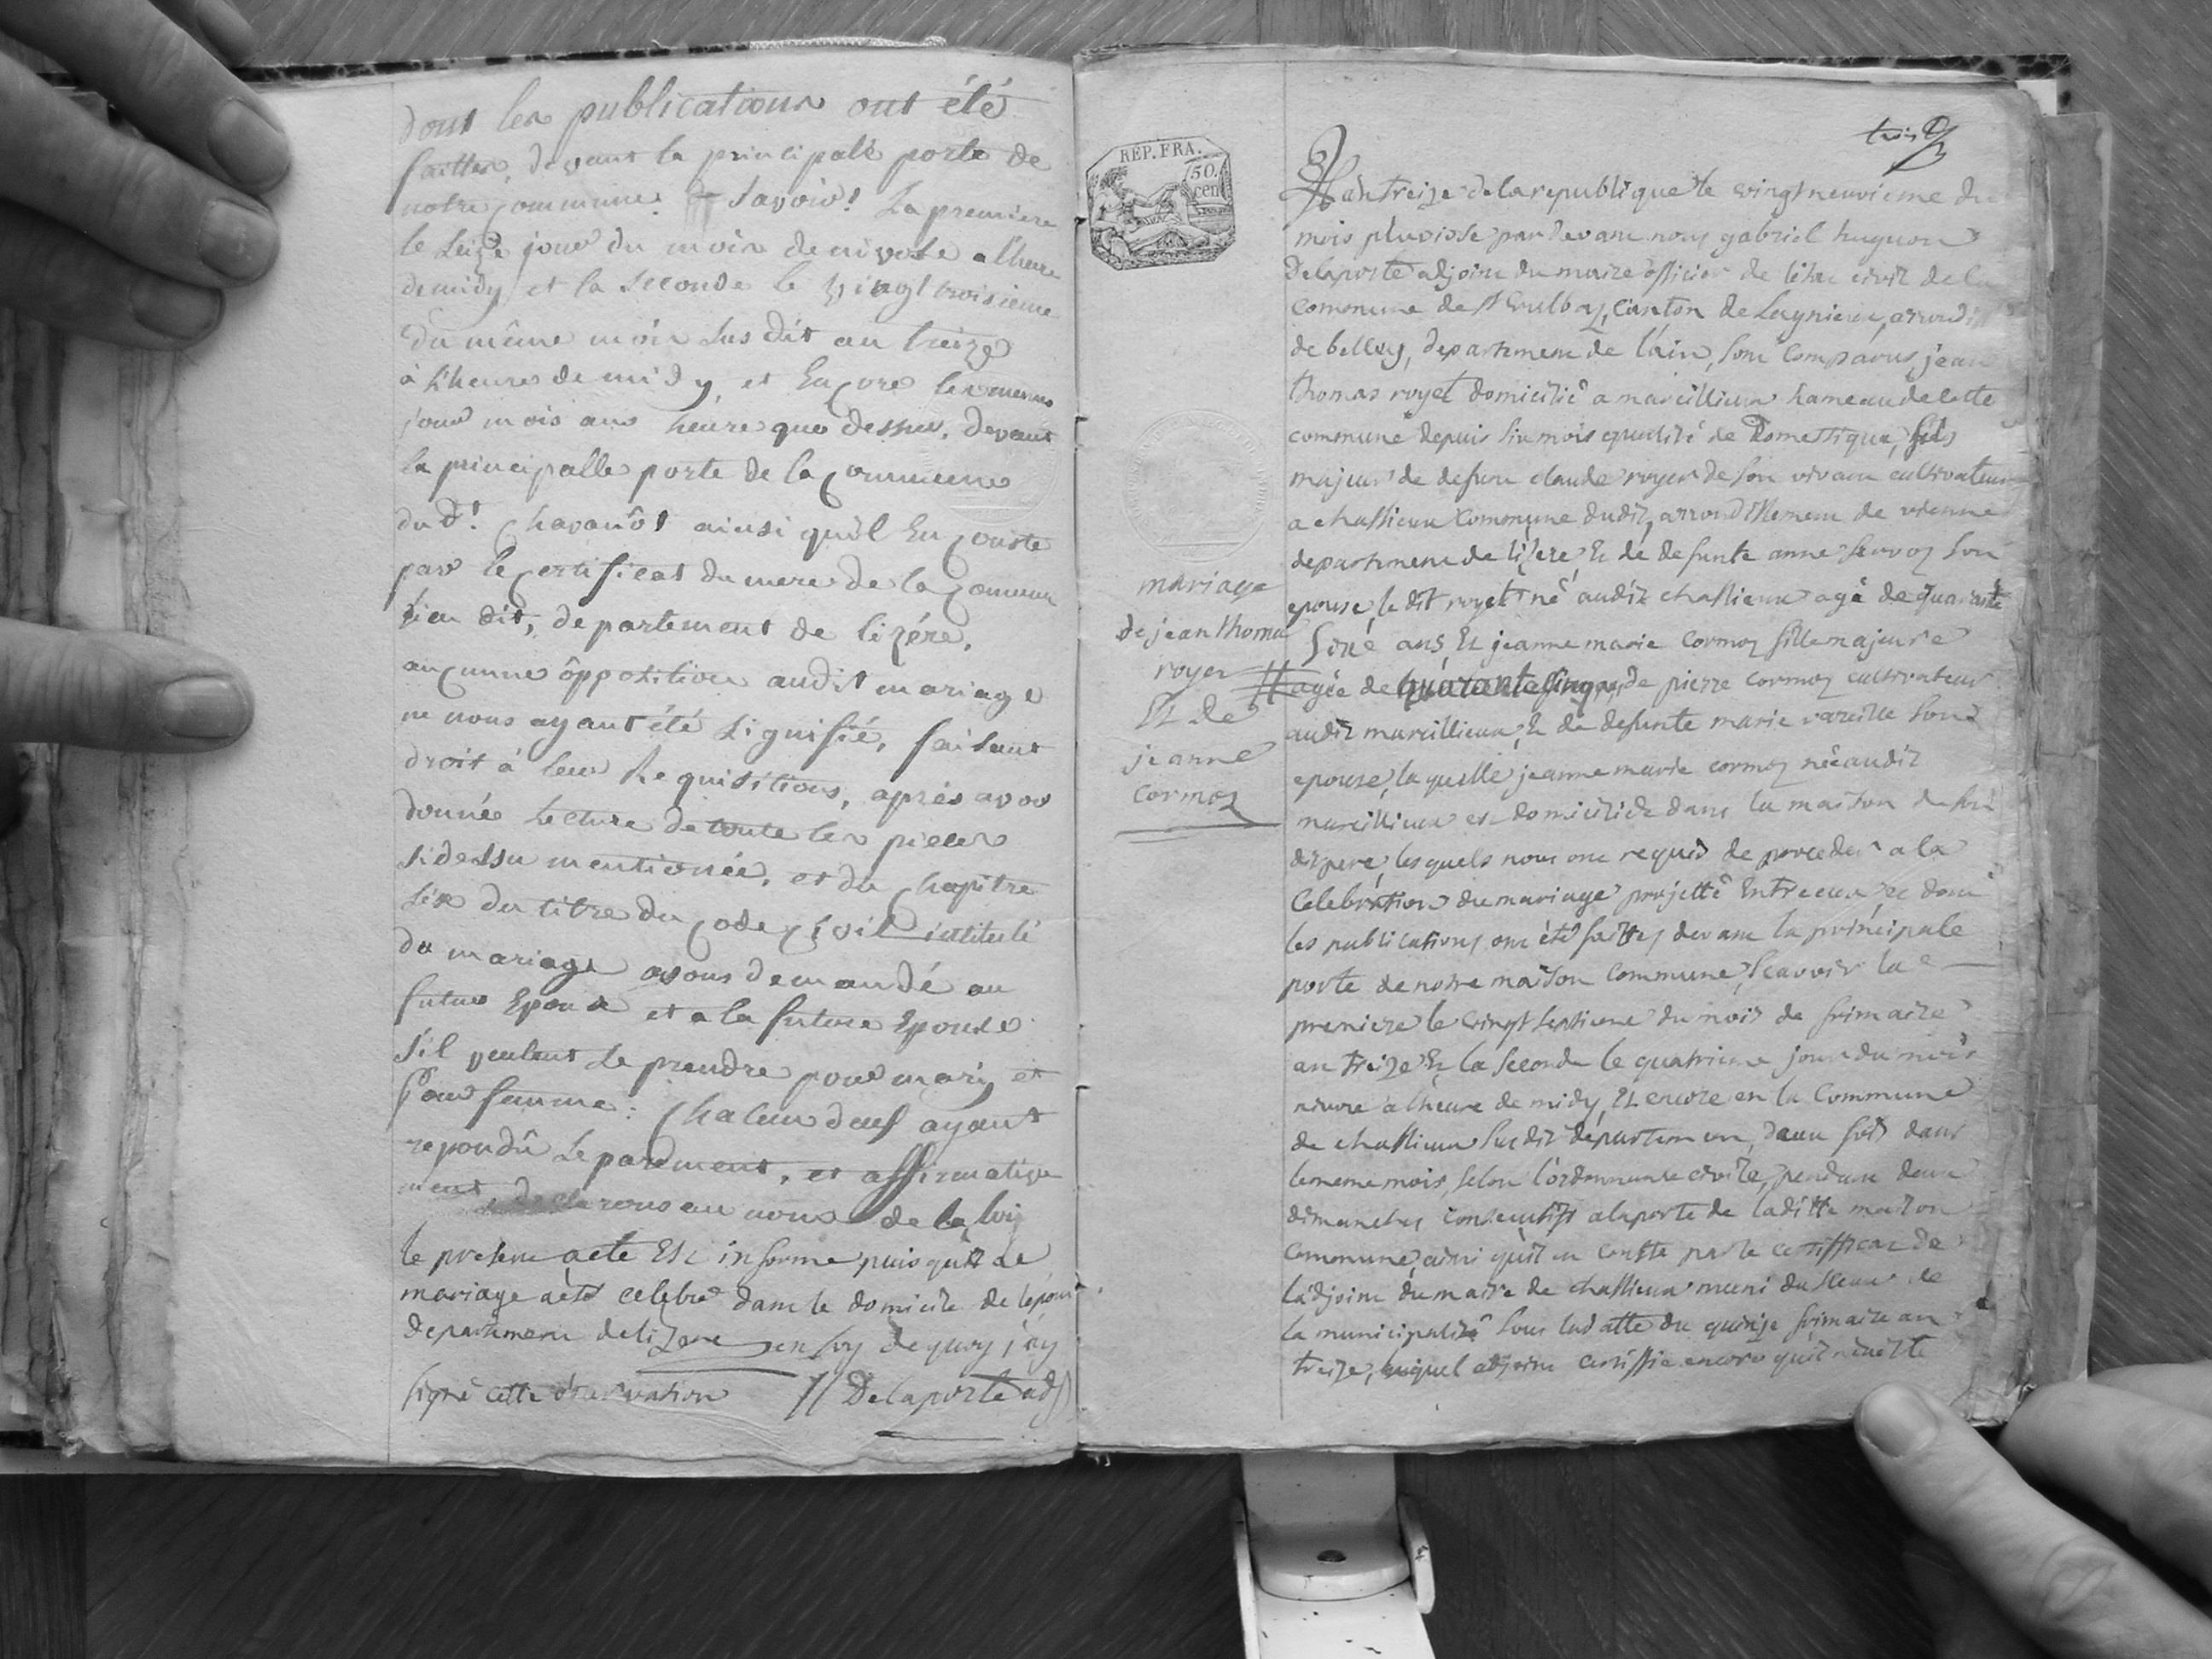 dont les publications ont été
faittes, devant la principalle porte de
notre commune. Savoir! La premiere
le seize jour du mois de nivose a l'heure
de midy et la seconde le vingt troisieme
du même mois sus dit an treize
à l'heure de midy, et encore les memes
jour mois ans heure que dessus, devant
la principalle porte de la commune
dud! Chavanôt ainsi qu'il en conste
par le certificat du mere de la commune
dit, departement de lizére,
aucunne ôppotition audit mariage
ne nous ayant été signifié, faisant
droit à leur Requisitions, aprés avoir
donnée lecture de toute les pieces
sidessu mentionée, et du chapitre
six du titre du code civil intitulé
du mariage avons demandé au
futur Epoux et a la future Epouse
s'il veulent se prendre pour mary et
pour femme: Chacun deux ayant
repondû séparement, et affirmative
ment, declarons au nom de la loy
le present acte Est informe puis que le
mariage a été celebré dans le domicile de l'epoux
departement de lizere en foy de quoy j'ay
signé cette observation Delaporte adj
trois
REP. FRA.
50.
cen
L'an treize de la republique le vingt neuvieme du
mois pluviose par devant nous gabriel huguon
Delaporte adjoint du maire officier de l'état civil de la
commune de st Vulbaz, canton de Lagnieux, arrondis
de belley, departement de l'ain, sont comparus, jean
thomas royet domicilié a marcillieux hameau de cette
commune depuis six mois qualité de Domestique, fils
majeur de defunt claude royer de son vivant cultivateur
a chassieux commune dudit, arrondissement de vienne
departement de lizere, Et de defunte anne servoz son
epouse, le dit royet né audit chassieux agé de quarante
ans, Et jeanne marie cormoz fille majeure
agée de quarante cinq ans, de pierre cormoz cultivateur
audit marcillieux, Et de defunte marie vareille son
epouse, laquelle jeanne marie cormoz née audit
marcillieux est domiciliée dans la maison de son
dit pere, lesquels nous ont requis de proceder a la
celebration du mariage projetté Entre eux, et dont
les publications ont été faittes devant la principale
porte de notre maison commune, scavoir la
premiere le vingt septieme du mois de frimaire
an treize Et la seconde le quatrieme jour du mois
nivose a l'heure de midy, Et encore en la commune
de chassieux susdit departement, deux fois dans
le meme mois, selon l'ordonnance civile, pendant deux
dimanches consecutifs a la porte de laditte maison
commune, ainsi qu'il en conste par le certifficat de
l'adjoint du maire de chassieux muni du sceau de
la municipalité sous la datte du quinze frimaire an
treize, lequel adjoint certiffie encore qu'il
mariage
de jean thomas
royer
Et de
jeanne
cormoz